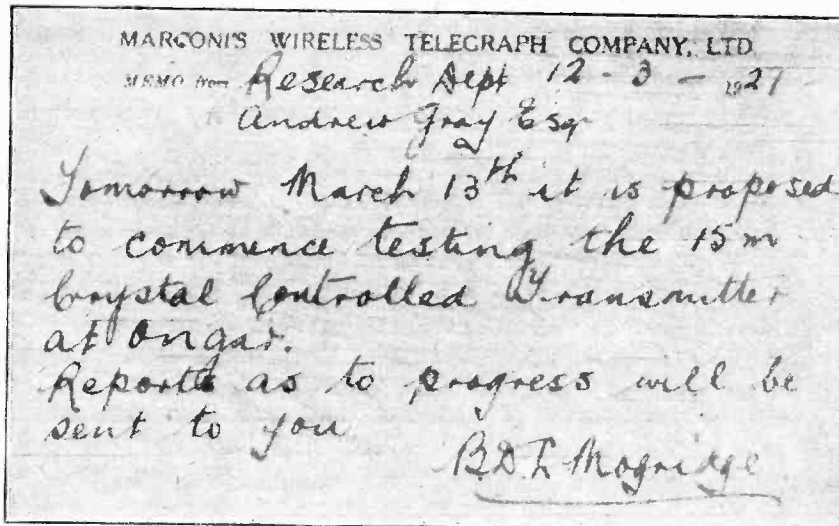 MARCONI'S WIRELESS TELEGRAPH COMPANY, LTD
MEMO from Research Dept 12 - 3 - 1927
Andrew Gray Esq
Tomorrow March 13th it is proposed
to commence testing the 15m
Crystal Controlled Transmitter
at Ongar.
Reports as to progress will be
sent to you
Mogridge